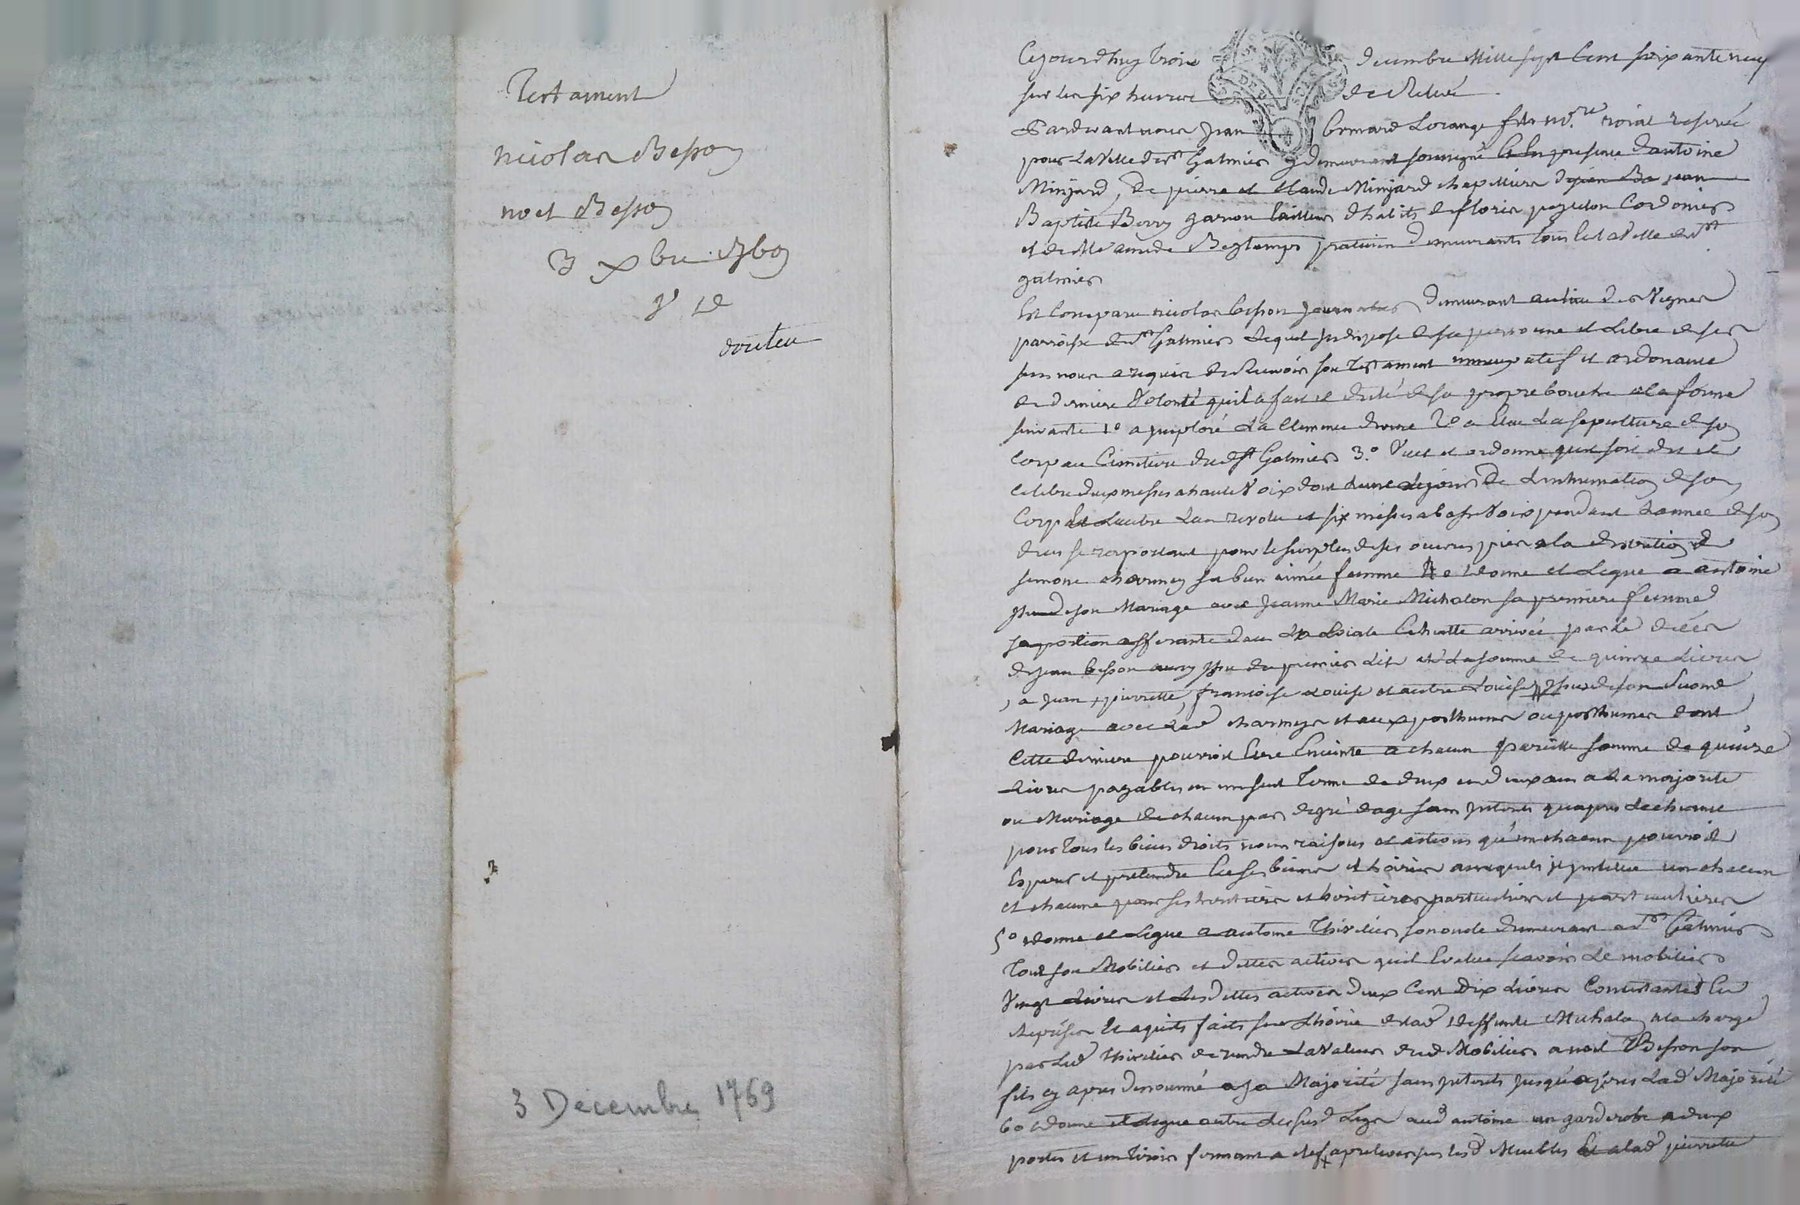 Testament
nicolas Besson
noel Besson
3 Xbre 1769
3 Decembre 1769
Cejourdhuy trois decembre Mille sept Cent soixante neuf
sur les six heures de Relevé
Pardevant nous Jean Bernard Lorange fils no.re roial reservé
pour La Ville de st Galmier y demeurant soussigné presence d'antoine
Minjard, de pierre et Claude Minjard chapelliers de jean
Baptiste Berry garson tailleur d'habits de floris peyrelon Cordonier
et de Me amede Bestemps praticien demeurants tous lad Ville de st
galmier
Est Comparu nicolas besson journalier demeurant au lieu des Vignes
parroisse de st Galmier Lequel de sa personne et Libre de ses
sens nous a requis de Recevoir son Testament nuncupatif et ordonance
de derniere Volonté quil a fait et dicté de sa propre bouche a la forme
suivante 1o a imploré La Clemence divine 2o a Elu La sepulture de son
Corp au Cimetiere dud st Galmier 3.o Veut et ordonne quil soit dit et
celebré deux messes a haute Voix dont L'une le jour de L'inhumation de son
Corp et L'autre L'an revolu et six messes a basse Voix pendant L'annee de son
deces se raportant pour le surplus de ses oeuvres pies a la devotion de
simone charmey sa bien aimée femme 4o donne et Legue a antoine
issu de son Mariage avec Jeanne Marie Michalon sa premiere femme
sa portion afferante dans La Loiale Echutte arrivée par Le décés
de Jean besson aussy issu du premier Lit et La somme de quinze Livres
, a Jean, pierrette, francoise Louise et autre Louise issus de son second
Mariage avec Lad charmey et aux posthumes ou posthumes dont
Cette derniere pourroit Etre Enceinte a chacun pareille somme de quinze
Livres payables en un seul terme de deux en deux ans a La majorité
ou Mariage de chacun par degré d'age sans interets qu'apres Lecheance
pour tous les biens droits noms raisons et actions qu'un chacun pourroit
Esperer et pretendre sur ses biens et hoirie auxquels il institue un chacun
et chacune pour ses heritiers et heritieres particuliers et particulieres
5o donne et Legue a antoine Thivelier son oncle demeurant a st Galmier
Tout son Mobilier et dettes actives quil Evalue scavoir Le mobilier
Vingt Livres et Les dettes actives deux Cent Dix Livres Consistantes En
reprises Et aquits faits sur L'hoirie de lad deffunte Michalon a la charge
par Led Thivelier de rendre La Valeur dud Mobilier a noel Besson son
fils cy apres denommé a sa Majorité sans interets jusqu'apres Lad Majorité
6o donne et Legue outre Le susd Legs aud antoine un garderobe a deux
portes et un tiroir fermant a clef a prelever sur lesd Meubles Et a lad pierrette